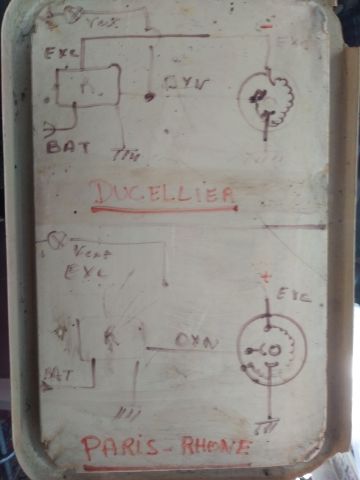 EXC
R
DYN
EXC
BAT
DUCELLIER
EXC
EXC
R
DYN
BAT
PARIS-RHONE